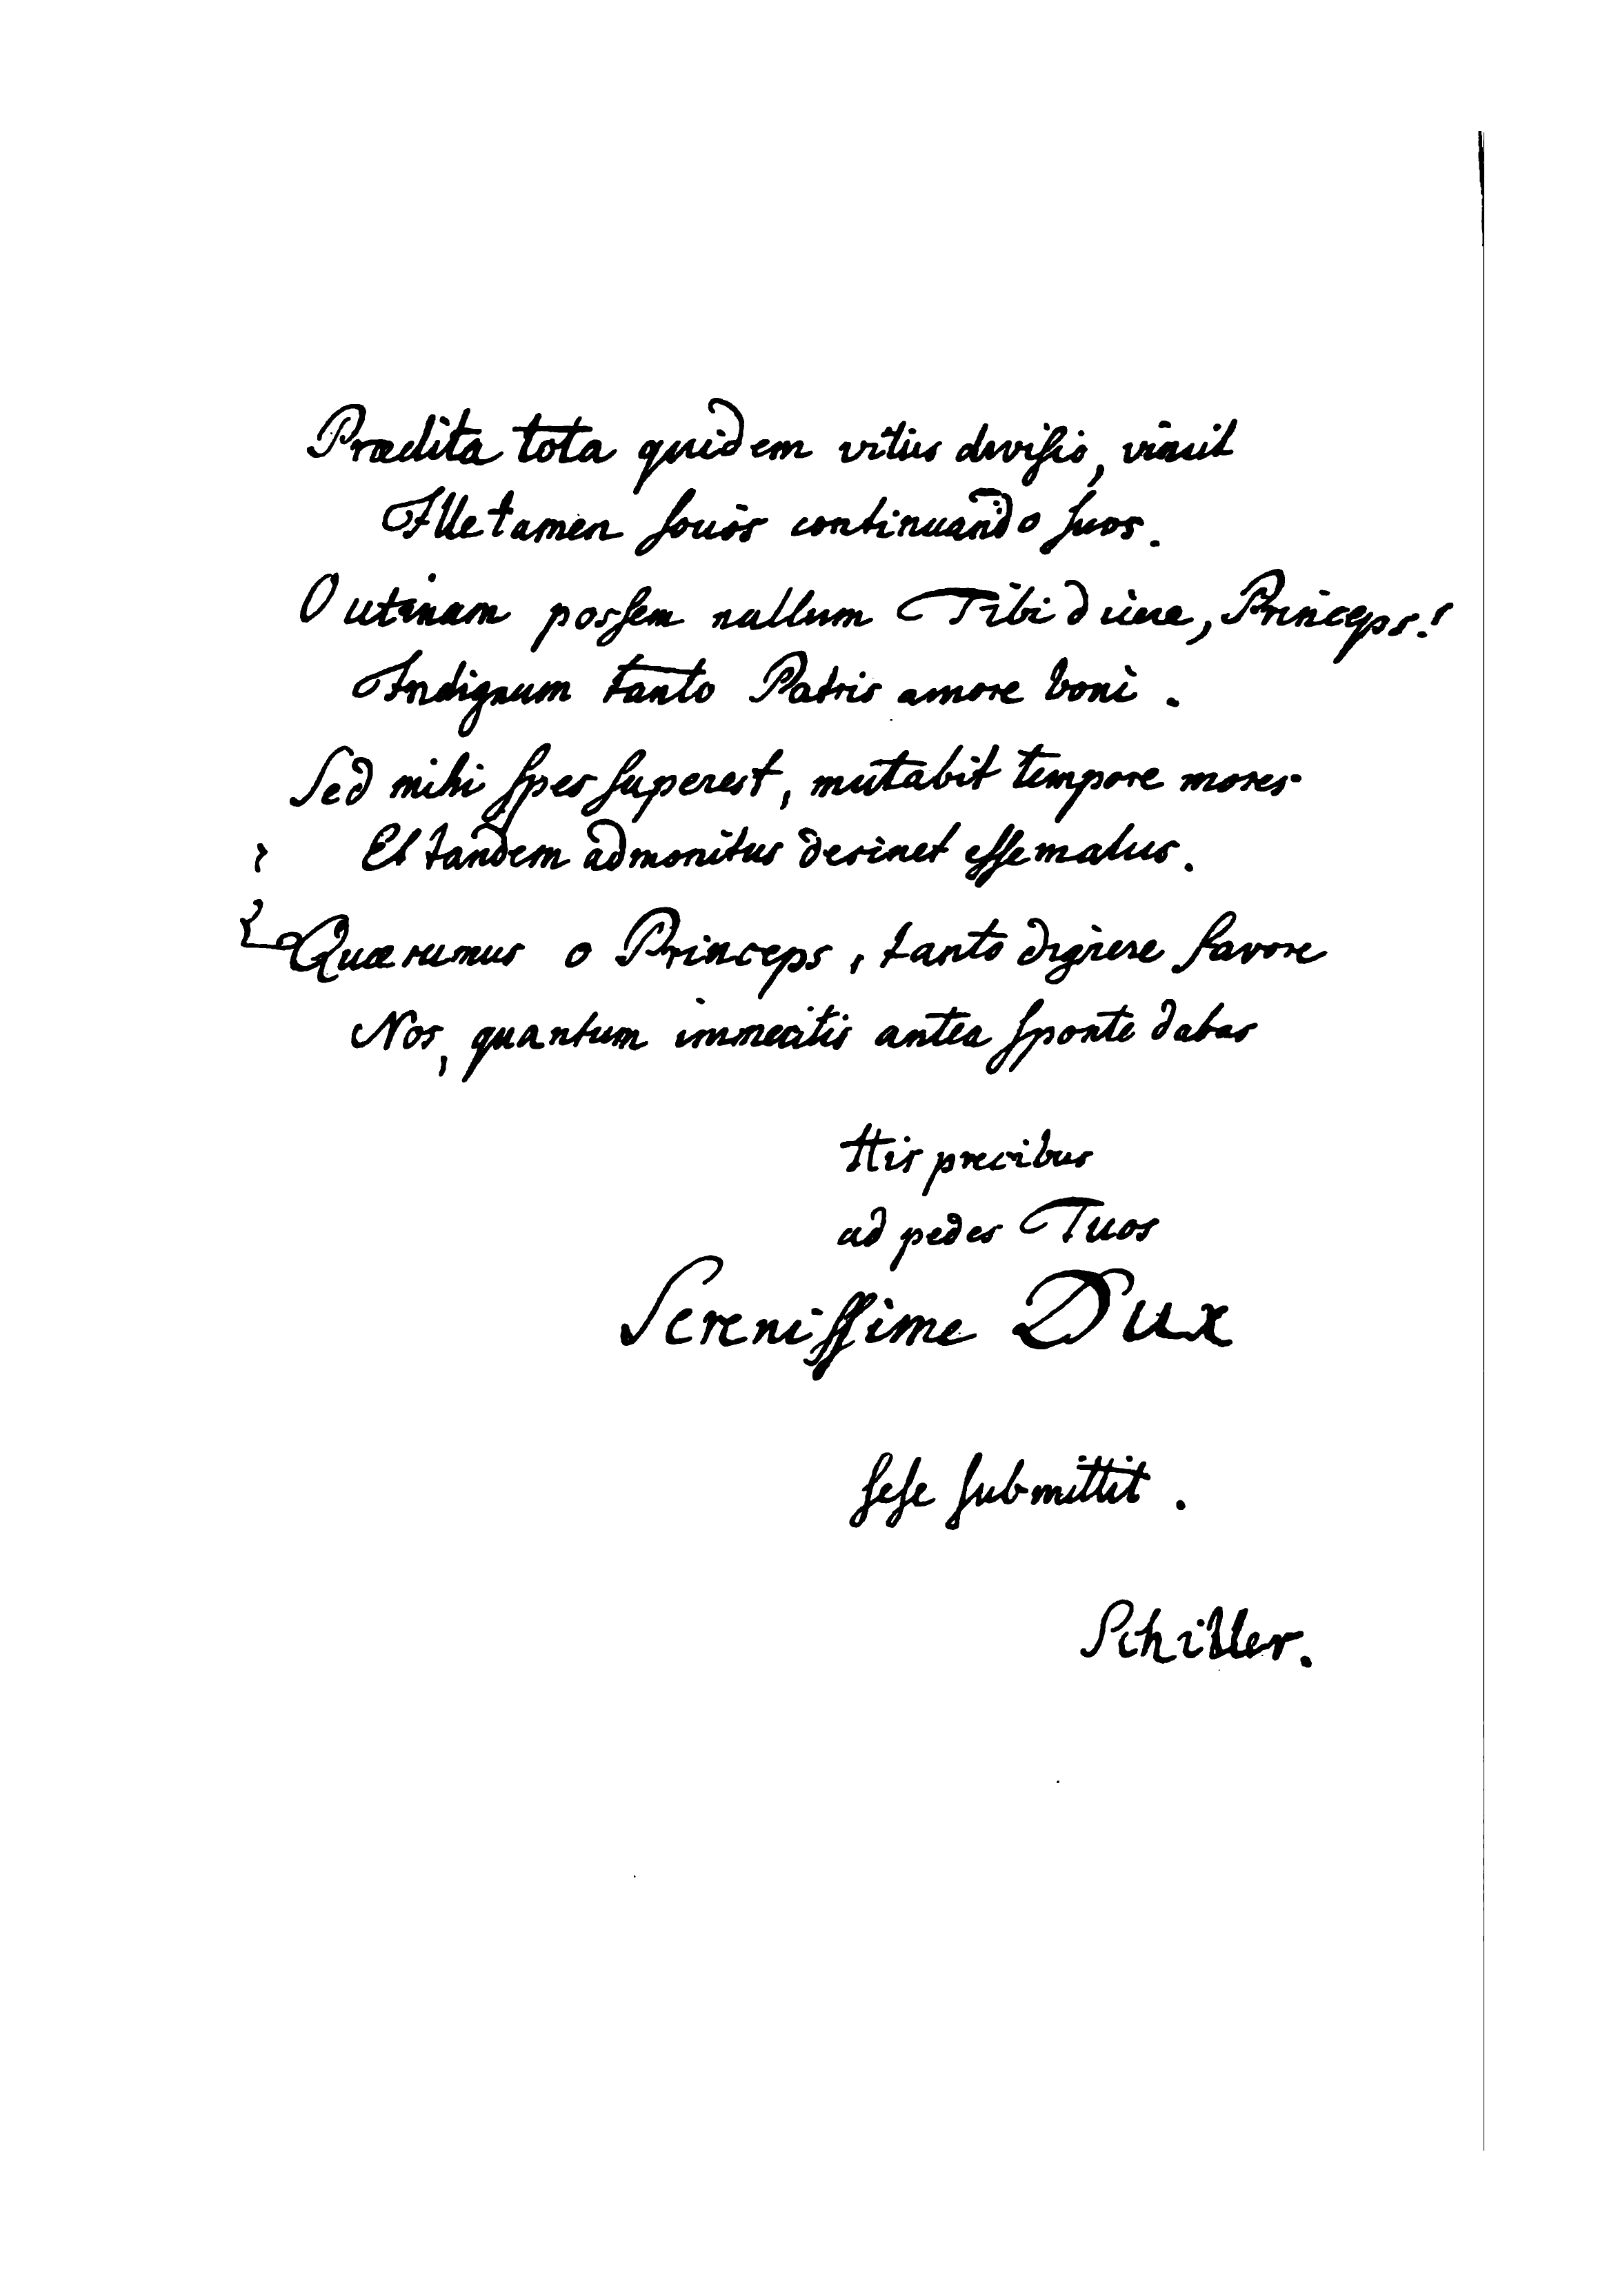 Prædita tota quidem vitiis divisio, vincit
Ille tamen socios continuando suos.
O utinam possem nullum Tibi dicere, Princeps!
Indignum tanto Patris amore boni.
Sed mihi spes superest, mutabit tempore mores
Et tandem admonitus desinet esse malus.
Quærumus o Princeps, tanto dignere favore
Nos, quantum immeritis antea sponte dabas
His precibus
ad pedes Tuos
Serenissime Dux
sese submittit.
Schiller.